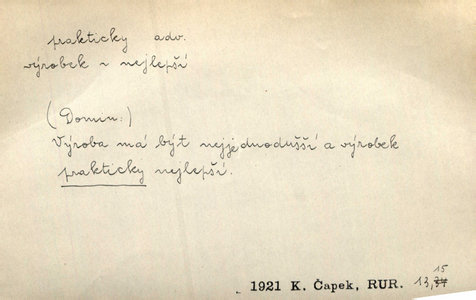 prakticky adv.
výrobek ~ nejlepší
(Domin:)
Výroba má být nejjednodušší a výrobek
prakticky nejlepší.
15
1921 K. Čapek, RUR. 13,